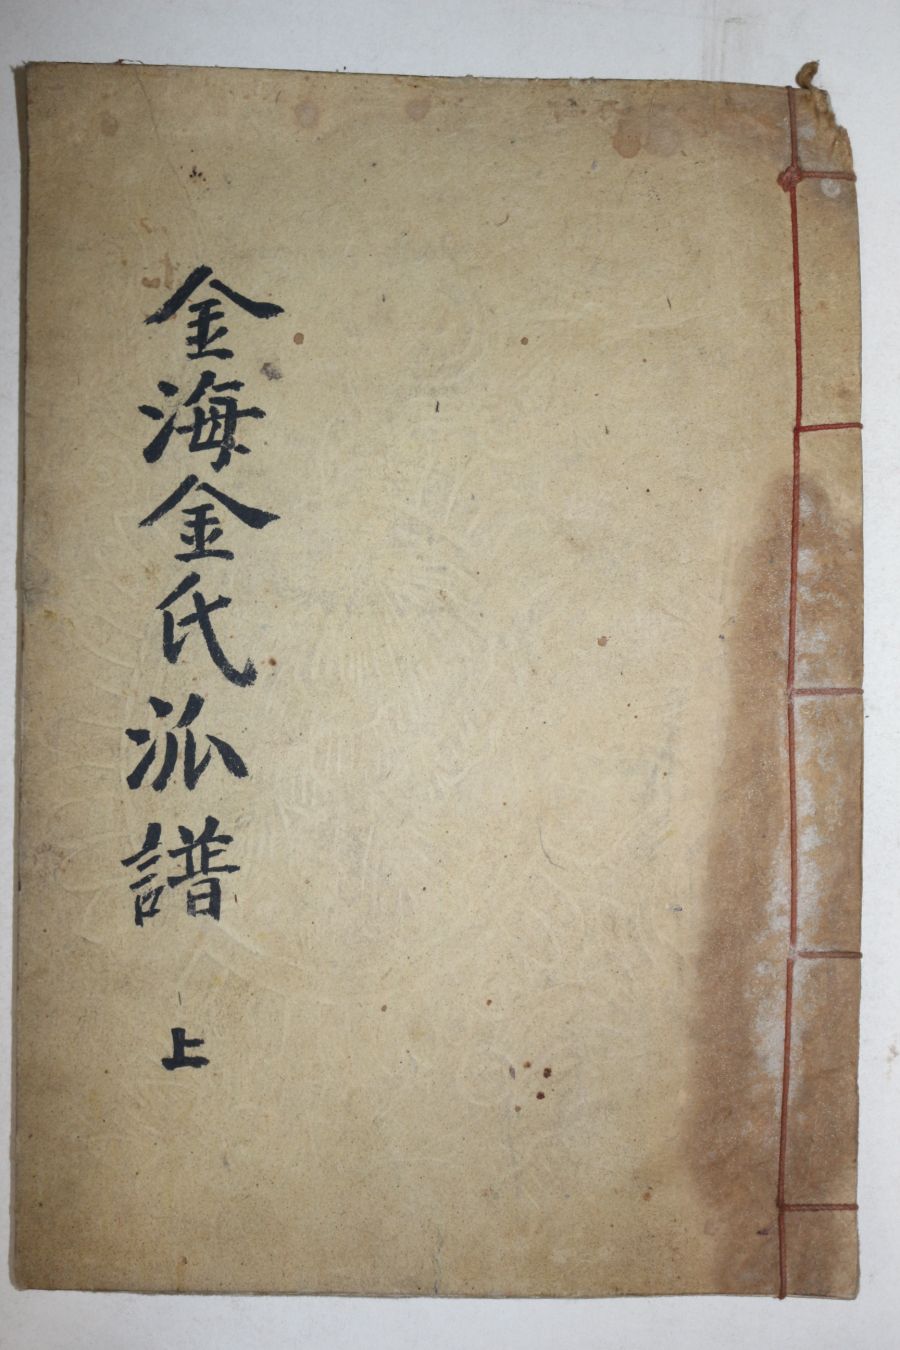 金海金氏派譜
上